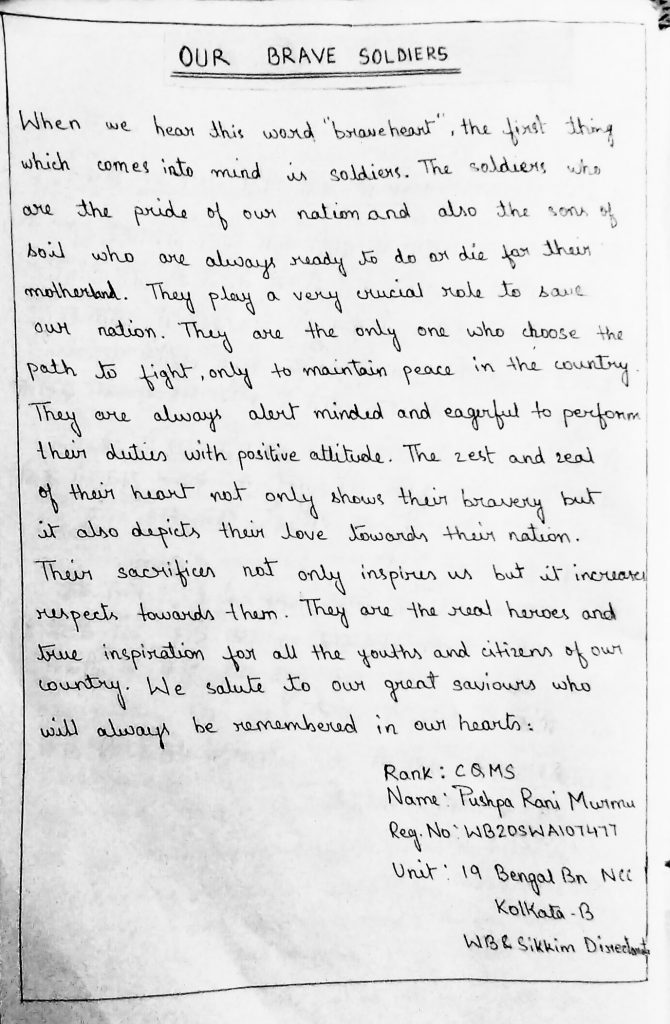 OUR BRAVE SOLDIERS
When we hear this word "braveheart", the first thing
which comes into mind is soldiers. The soldiers who
are the pride of our nation and also the sons of
soil who are always ready to do or die for their
motherland. They play a very crucial role to save
our nation. They are the only one who choose the
path to fight, only to maintain peace in the country.
They are always alert minded and eagerful to perform
their duties with positive attitude. The zest and zeal
of their heart not only shows their bravery but
it also depicts their love towards their nation.
Their sacrifices not only inspires us but it increases
respects towards them. They are the real heroes and
true inspiration for all the youths and citizens of our
country. We salute to our great saviours who
will always be remembered in our hearts:
Rank: CQMS
Name: Pushpa Rani Murmu
Reg. No: WB20SWA107477
Unit: 19 Bengal Bn NCC
Kolkata-B
WB & Sikkim Directorate